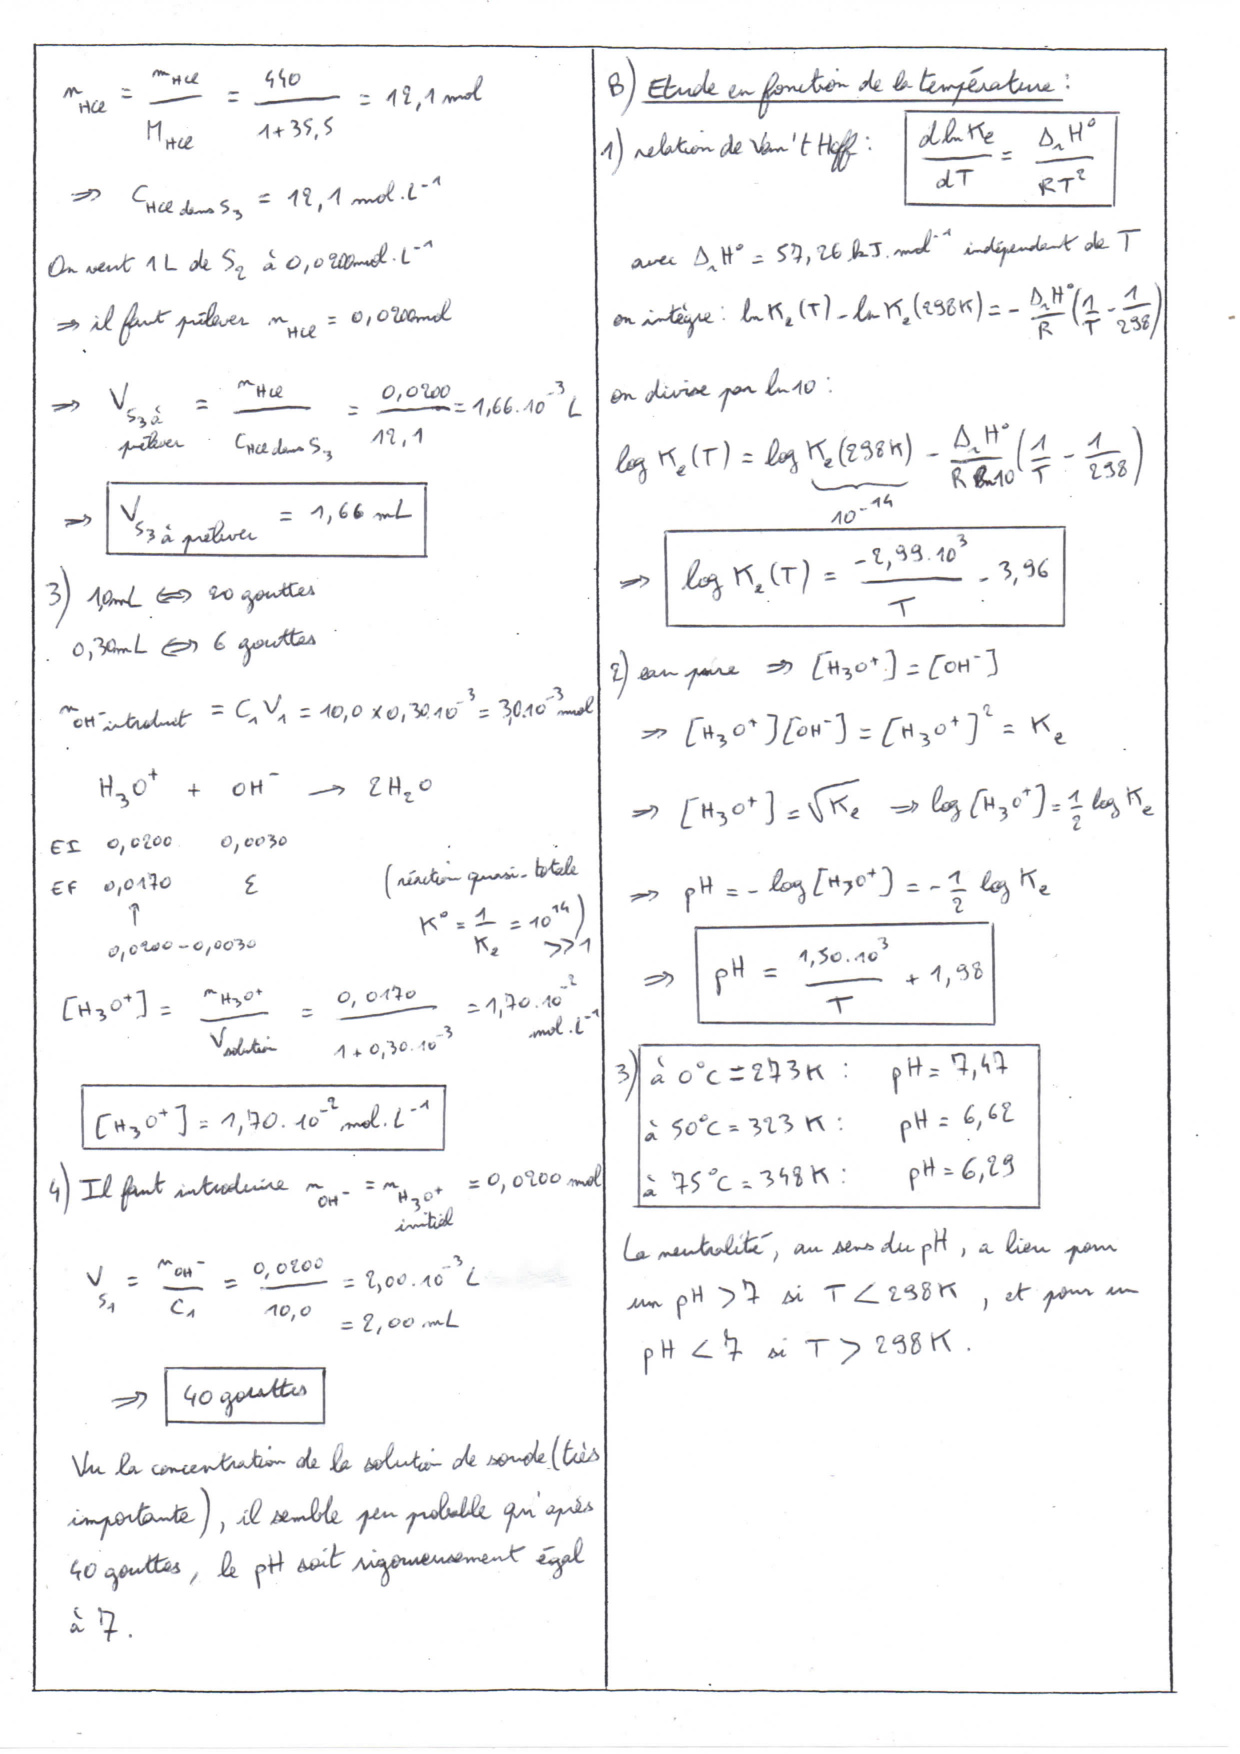 n_HCl = m_HCl / M_HCl = 440 / (1+35,5) = 12,1 mol
⇒ C_HCl dans S3 = 12,1 mol.L⁻¹
On veut 1L de S₂ à 0,0200mol.L⁻¹
⇒ il faut prélever n_HCl = 0,0200mol
⇒ V_S3 à prélever = n_HCl / C_HCl dans S3 = 0,0200 / 12,1 = 1,66.10⁻³ L
⇒ V_S3 à prélever = 1,66 mL
3) 1,0mL ⇔ 20 gouttes
0,30mL ⇔ 6 gouttes
n_OH⁻ introduit = C₁V₁ = 10,0 x 0,30.10⁻³ = 3,0.10⁻³ mol
H₃O⁺ + OH⁻ → 2H₂O
EI 0,0200 0,0030
EF 0,0170 ε (réaction quasi-totale
↑ K° = 1/Ke = 10¹⁴ >>1)
0,0200-0,0030
[H₃O⁺] = n_H₃O⁺ / V_solution = 0,0170 / (1+0,30.10⁻³) = 1,70.10⁻² mol.L⁻¹
[H₃O⁺] = 1,70.10⁻² mol.L⁻¹
4) Il faut introduire n_OH⁻ = n_H₃O⁺ initial = 0,0200 mol
V_S1 = n_OH⁻ / C₁ = 0,0200 / 10,0 = 2,00.10⁻³ L
= 2,00 mL
⇒ 40 gouttes
Vu la concentration de la solution de soude (très
importante), il semble peu probable qu'après
40 gouttes, le pH soit rigoureusement égal
à 7.
B) Etude en fonction de la température :
1) relation de Van't Hoff : d ln Ke / dT = ΔrH° / RT²
avec ΔrH° = 57,26 kJ.mol⁻¹ indépendant de T
on intègre : ln Ke(T) - ln Ke(298K) = - ΔrH°/R (1/T - 1/298)
on divise par ln 10 :
log Ke(T) = log Ke(298K) - ΔrH°/(R ln10) (1/T - 1/298)
10⁻¹⁴
⇒ log Ke(T) = -2,99.10³ / T - 3,96
2) eau pure ⇒ [H₃O⁺] = [OH⁻]
⇒ [H₃O⁺][OH⁻] = [H₃O⁺]² = Ke
⇒ [H₃O⁺] = √Ke ⇒ log [H₃O⁺] = 1/2 log Ke
⇒ pH = - log [H₃O⁺] = - 1/2 log Ke
⇒ pH = 1,50.10³ / T + 1,98
3) à 0°C = 273K : pH = 7,47
à 50°C = 323 K : pH = 6,62
à 75°C = 348K : pH = 6,29
La neutralité, au sens du pH, a lieu pour
un pH > 7 si T < 298K, et pour un
pH < 7 si T > 298K.